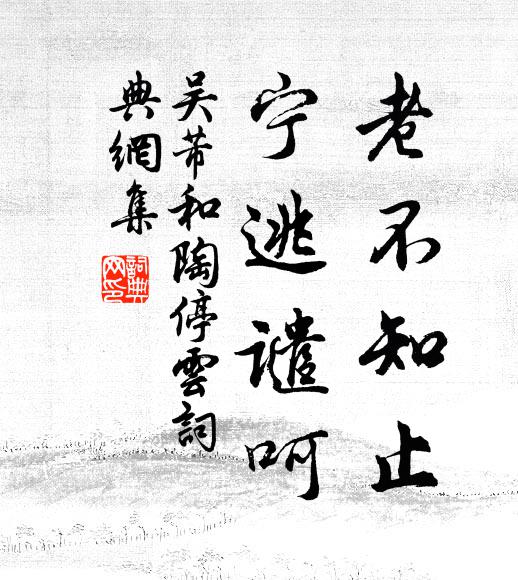 老不知止
宁逃谴呵
吴芾和陶停雲詞
典網集
詞典網印